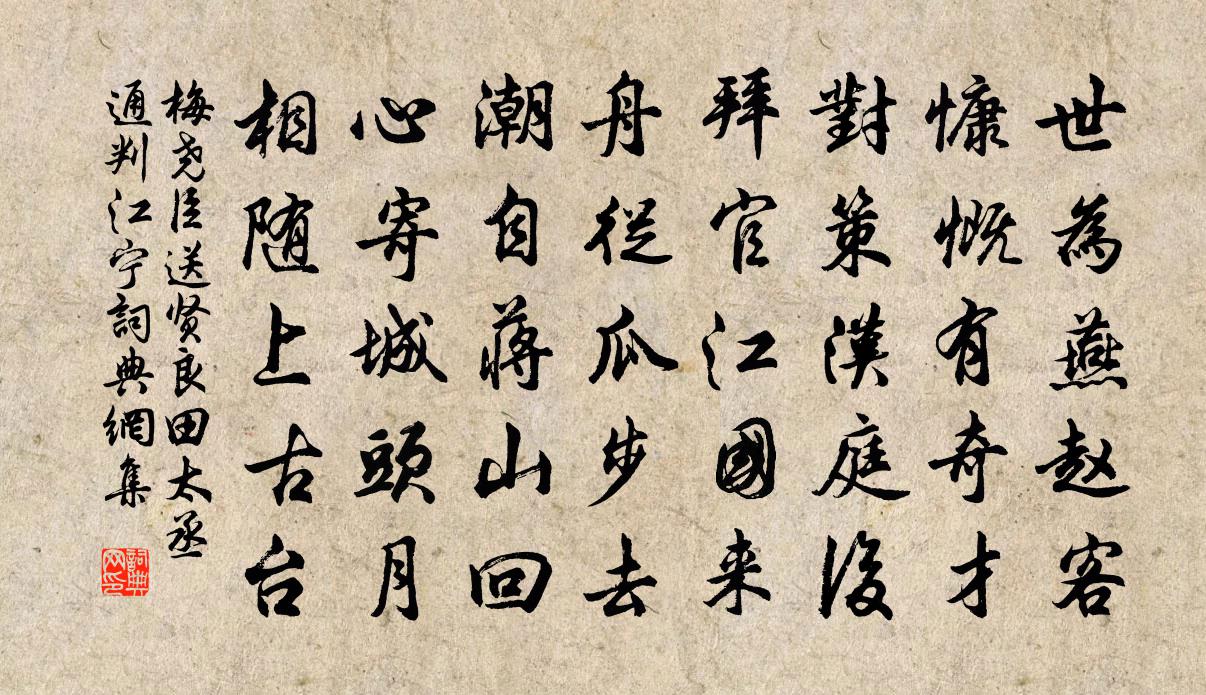 世為燕赵客
慷慨有奇才
對策漢庭後
拜官江國来
舟從瓜步去
潮自蒋山回
心寄城頭月
相随上古台
梅尧臣送贤良田太丞
通判江宁詞典網集
詞典网印